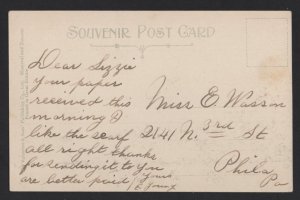 SOUVENIR POST CARD
Dear Lizzie
your paper
received this
morning I
like the scarf
all right thanks
for sending it to you
are better paid
yours
Miss E. Wasson
2141 N. 3rd St
Phila
Pa